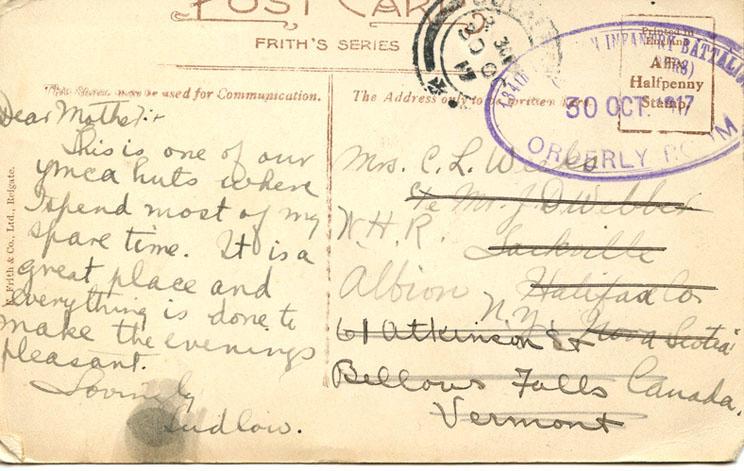 POST CARD
FRITH'S SERIES
This Space may be used for Communication.
The Address only to be written here
Printed in
England
Affix
Halfpenny
Stamp
INFANTRY BATTALION
30 OCT. 17
ORDERLY ROOM
30 OC
17
F. Frith & Co., Ltd., Reigate.
Dear Mother:-
This is one of our
ymca huts where
I spend most of my
spare time. It is a
great place and
everything is done to
make the evenings
pleasant.
Lovingly
Ludlow.
Mrs. C. L. Webber
c/o Mr. J D Webber
W.H.R. Sackville
Albion Halifax Co
N.Y. Nova Scotia
61 Atkinson St
Bellows Falls Canada.
Vermont